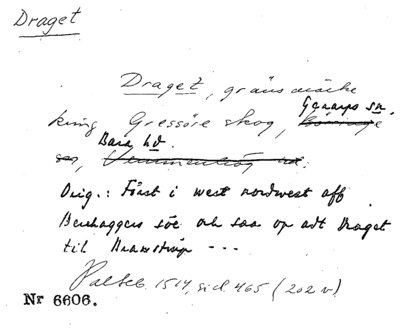 Draget
Draget, gränsmärke
Genarps sn.
kring Gressöre skog,
Bara hd.
sn, Vemmenhög hd.
Orig.: Först i west nordwest aff
söe och saa op adt Draget
til ---
Palteb. 1514, sid. 465 (202 v)
Nr 6606.